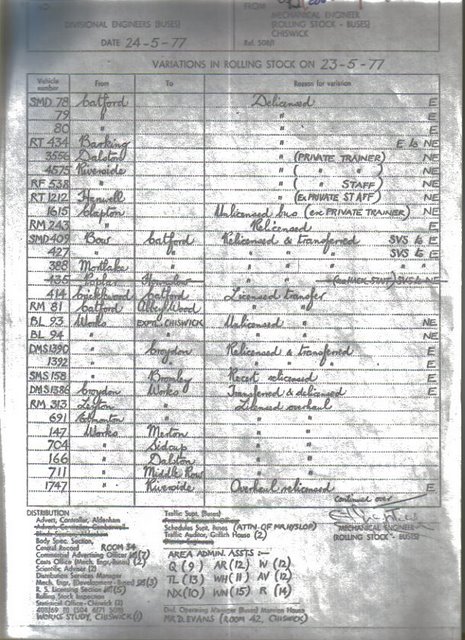 TO
FROM
DIVISIONAL ENGINEERS (BUSES)
MECHANICAL ENGINEER
(ROLLING STOCK - BUSES)
CHISWICK
DATE 24-5-77
Ref. 508/1
VARIATIONS IN ROLLING STOCK ON 23-5-77
Vehicle number From To Reason for variation
SMD 78 Catford Delicensed E
79 " " E
80 " " E
RT 434 Barking " E to NE
3556 Dalston " (PRIVATE TRAINER) NE
4575 Riverside " ( " " ) NE
RF 538 " " ( " STAFF) NE
RT 1212 Hanwell " (EX PRIVATE STAFF) NE
1615 Clapton Unlicensed bus (ex PRIVATE TRAINER) NE
RM 243 " Relicensed E
SMD 409 Bow Catford Relicensed & transferred SVS to E
427 " " " " " SVS to E
388 Mortlake " " " " " "
414 Cricklewood Catford Licensed transfer
RM 81 Catford Abbey Wood " "
BL 93 Works EXPTL. CHISWICK Unlicensed " NE
BL 94 " " " " NE
DMS 1390 " Croydon Relicensed & transferred E
1392 " " " " " E
SMS 158 " Bromley Recert relicensed E
DMS 1386 Croydon Works Transferred & delicensed E
RM 313 Leyton " Licensed overhaul
691 Edmonton " " "
147 Works Merton " "
704 " Sidcup " "
166 " Dalston " "
711 " Middle Row " "
1747 " Riverside Overhaul relicensed E
Continued over
MECHANICAL ENGINEER
(ROLLING STOCK - BUSES)
DISTRIBUTION
Advert. Controller, Aldenham
Body Spec. Section,
Central Record ROOM 54
Commercial Advertising Officer (7)
Costs Office (Mech. Engr., Buses) (2)
Scientific Adviser (2)
Distribution Services Manager
Mech. Engr. (Development - Buses) (3)
R. S. Licensing Section (5)
Rolling Stock Inspection
Statistical Office - Chiswick (2)
WORKS STUDY, CHISWICK (1)
Traffic Supt. (Buses)
Schedules Supt. (Buses) (ATTN. OF MR. HYSLOP)
Traffic Auditor, Griffith House (2)
AREA ADMIN. ASSTS :-
Q (9) AR (12) W (12)
TL (13) WH (11) AV (12)
NX (10) WN (15) R (14)
Divl. Operating Manager (Buses) Mansion House
MR D. EVANS (ROOM 42, CHISWICK)